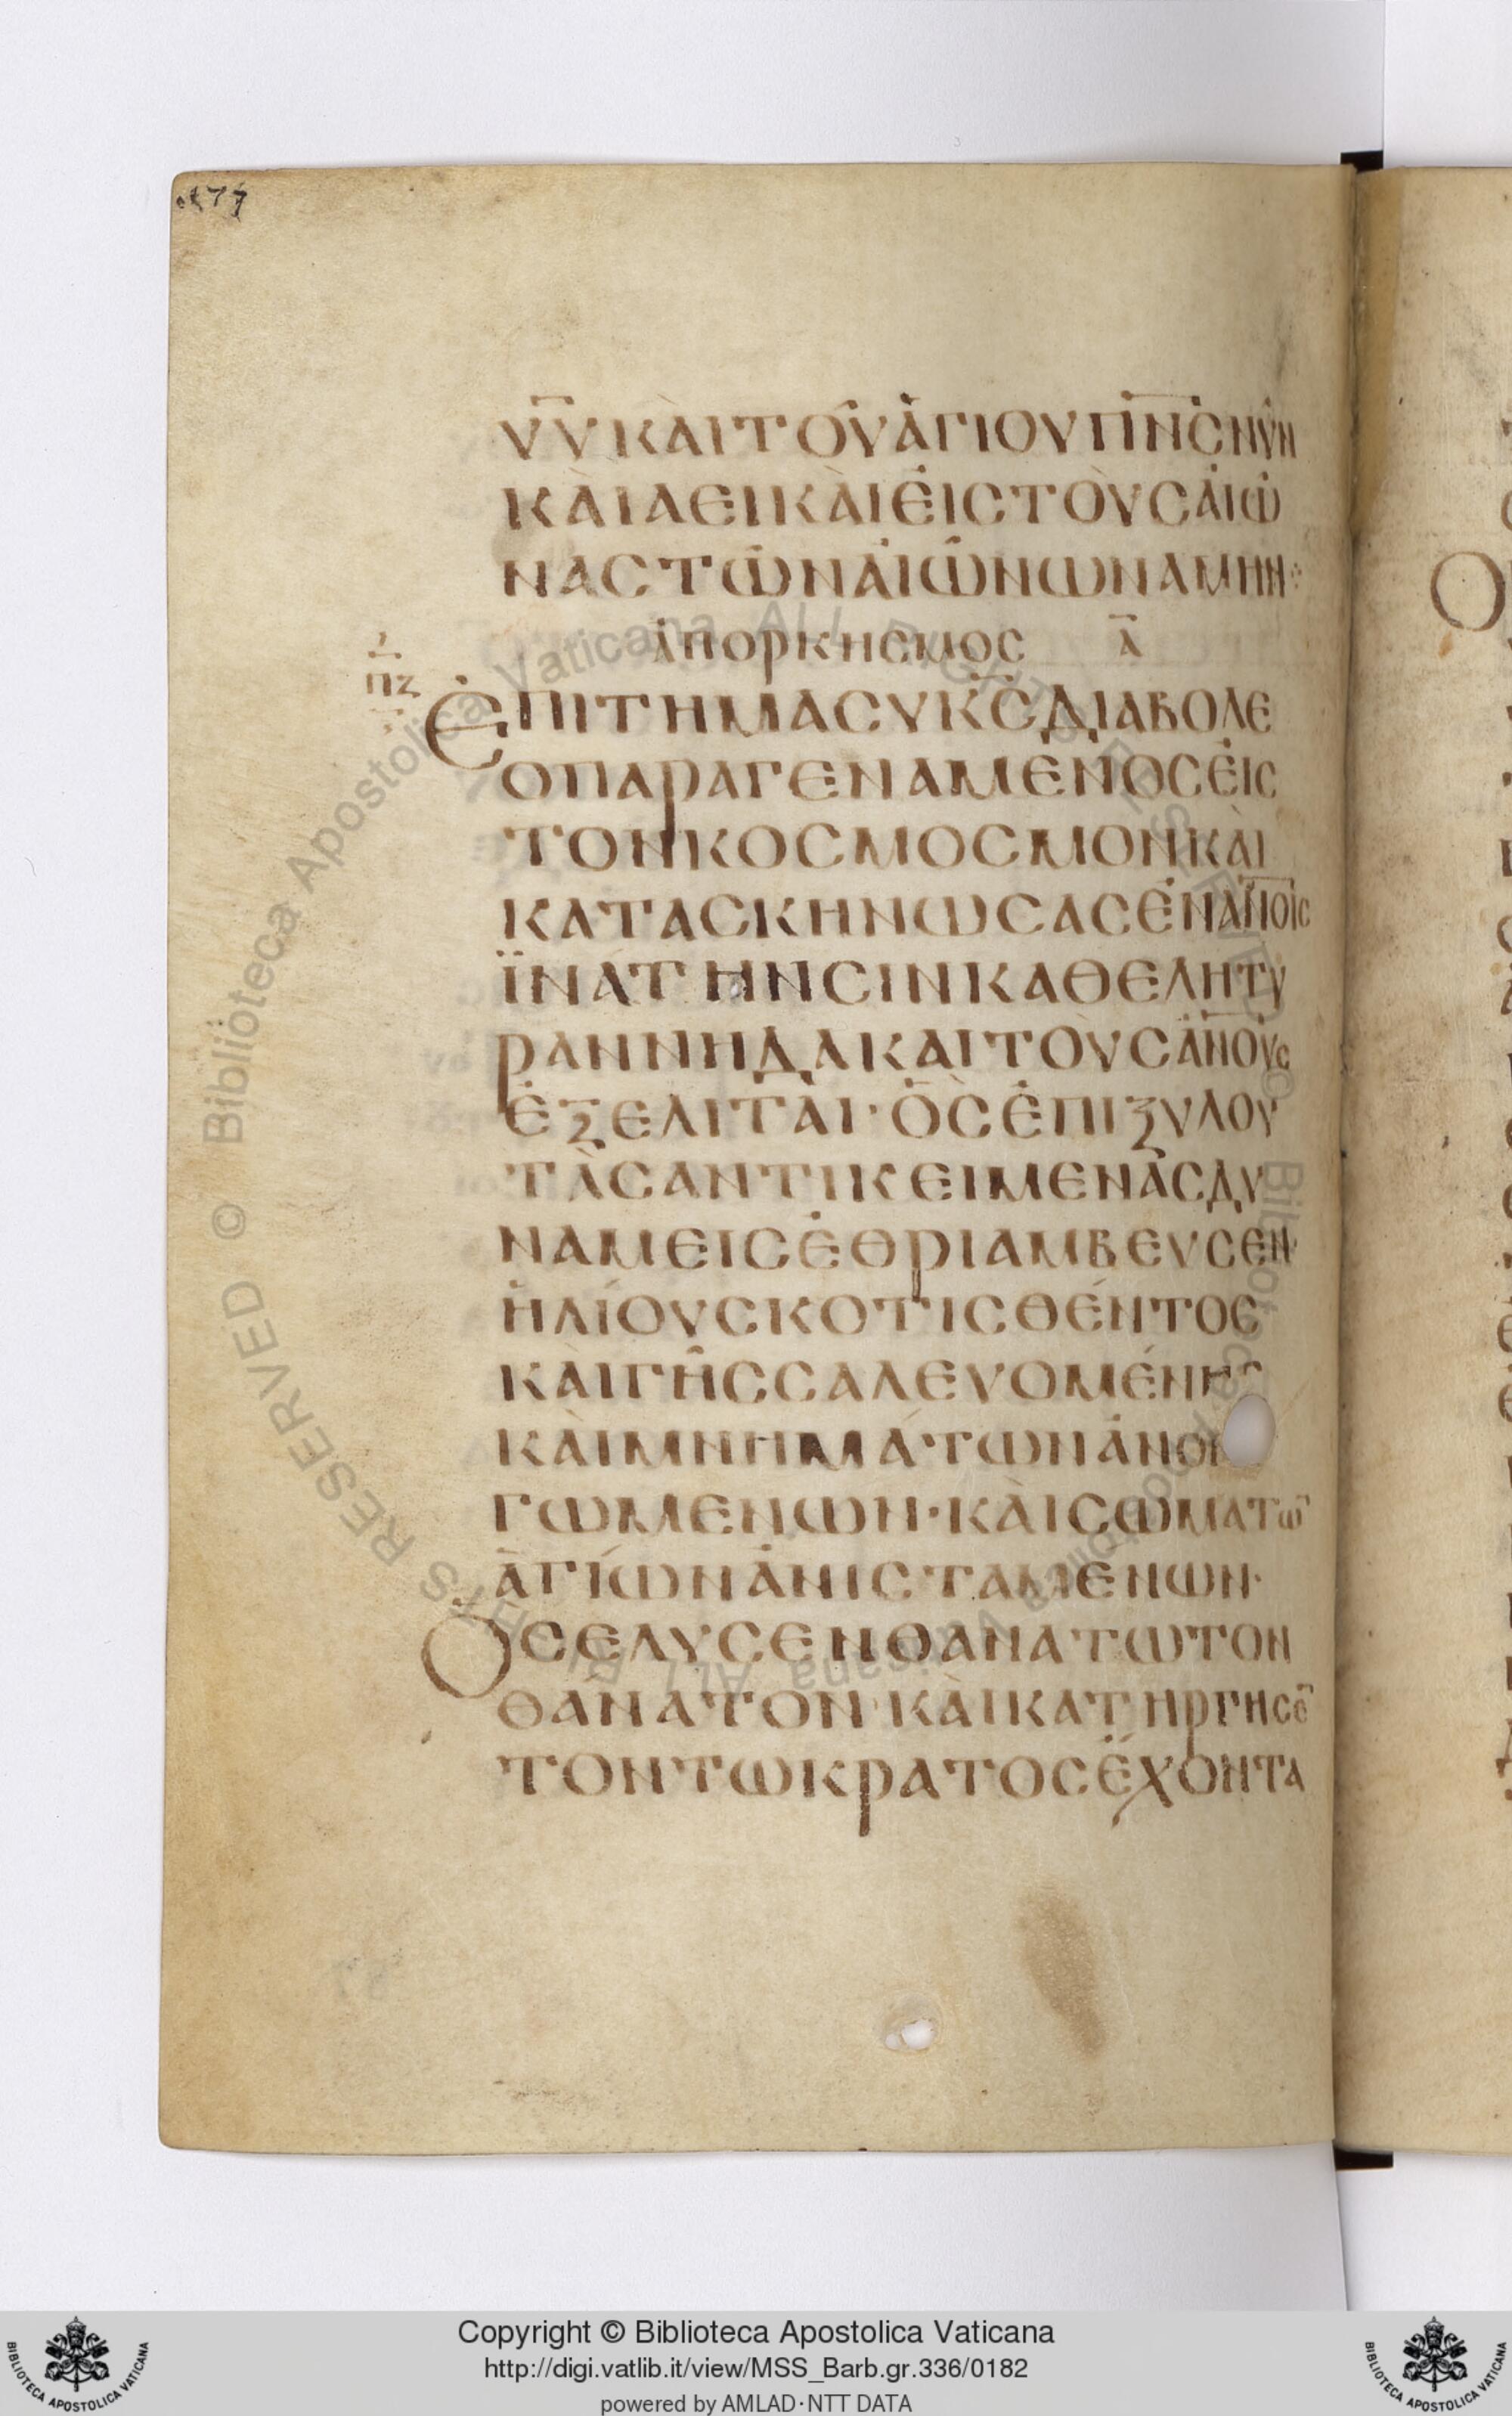 177
ΥΥ ΚΑΙ ΤΟΥ ΑΓΙΟΥ ΠΝϹ ΝΥΝ
ΚΑΙ ΑΕΙ ΚΑΙ ΕΙϹ ΤΟΥϹ ΑΙΩ
ΝΑϹ ΤΩΝ ΑΙΩΝΩΝ ΑΜΗΝ
ΑΠΟΡΚΗϹΜΟϹ Α
ΠΖ
ΕΠΙΤΗΜΑ ϹΥ ΚϹ ΔΙΑΒΟΛΕ
Ο ΠΑΡΑΓΕΝΑΜΕΝΟϹ ΕΙϹ
ΤΟΝ ΚΟϹΜΟϹΜΟΝ ΚΑΙ
ΚΑΤΑϹΚΗΝΩϹΑϹ ΕΝ ΑΝΟΙϹ
ΪΝΑ ΤΗΝ ϹΙΝ ΚΑΘΕΛΗ ΤΥ
ΡΑΝΝΗΔΑ ΚΑΙ ΤΟΥϹ ΑΝΟΥϹ
ΕΞΕΛΙΤΑΙ· ΟϹ ΕΠΙ ΞΥΛΟΥ
ΤΑϹ ΑΝΤΙΚΕΙΜΕΝΑϹ ΔΥ
ΝΑΜΕΙϹ ΕΘΡΙΑΜΒΕΥϹΕΝ·
ΗΛΙΟΥ ϹΚΟΤΙϹΘΕΝΤΟϹ
ΚΑΙ ΓΗϹ ϹΑΛΕΥΟΜΕΝΗϹ
ΚΑΙ ΜΝΗΜΑΤΩΝ ΑΝΟΙ
ΓΩΜΕΝΩΝ· ΚΑΙ ϹΩΜΑΤΩ
ΑΓΙΩΝ ΑΝΙϹΤΑΜΕΝΩΝ·
ΟϹ ΕΛΥϹΕΝ ΘΑΝΑΤΩ ΤΟΝ
ΘΑΝΑΤΟΝ ΚΑΙ ΚΑΤΗΡΓΗϹΕ
ΤΟΝ ΤΩ ΚΡΑΤΟϹ ΕΧΟΝΤΑ
Copyright © Biblioteca Apostolica Vaticana
http://digi.vatlib.it/view/MSS_Barb.gr.336/0182
powered by AMLAD·NTT DATA